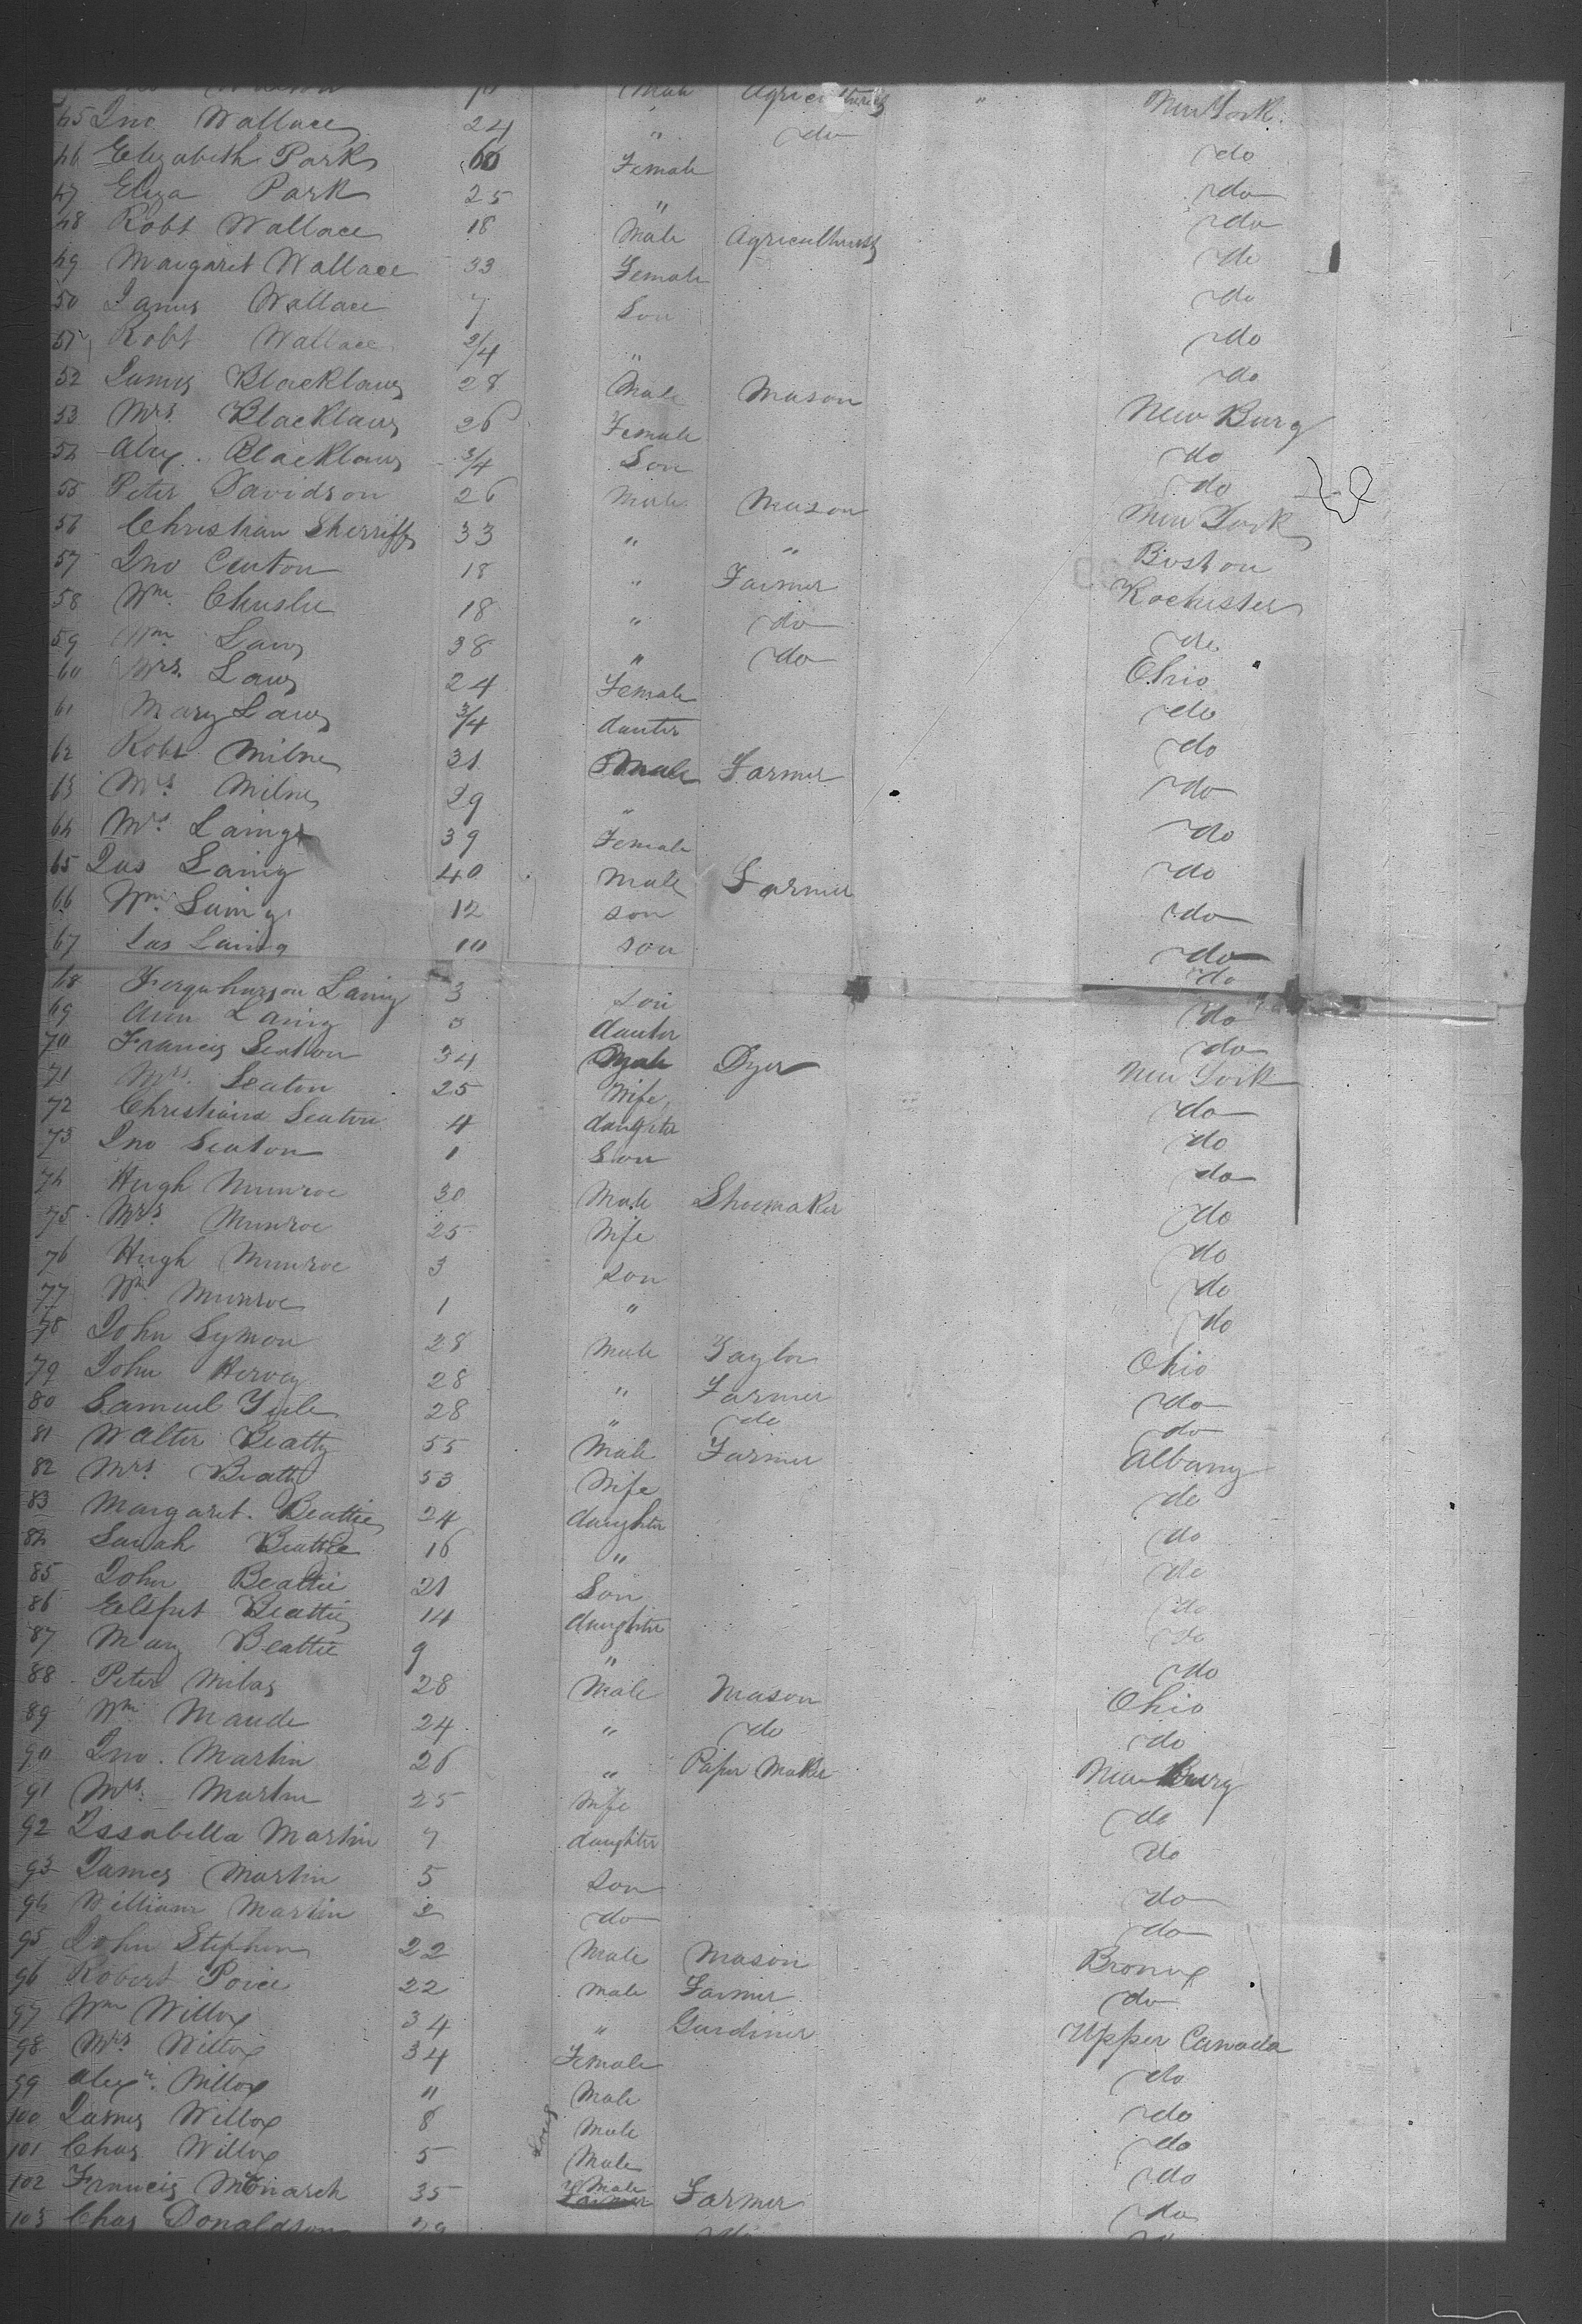 Male Agriculturist " New York
45 Jno Wallace 24 " do do
46 Elizabeth Park 60 Female do
47 Eliza Park 25 " do
48 Robt Wallace 18 Male Agriculturist do
49 Margaret Wallace 33 Female do
50 James Wallace 7 Son do
51 Robt Wallace 2/4 " do
52 James Blacklaws 28 Male Mason New Burg
53 Mrs. Blacklaws 26 Female do
54 Alex. Blacklaws 3/4 Son do
55 Peter Davidson 26 Male Mason New York
56 Christian Sherriffs 33 " " Boston
57 Jno Ceaton 18 " Farmer Rochister
58 Wm. 18 " do do
59 Wm Laws 38 " do Ohio
60 Mrs. Laws 24 Female do
61 Mary Laws 3/4 dauter do
62 Robt Milne 31 Male Farmer do
63 Mrs. Milne 29 " do
64 Mrs. Laing 39 Female do
65 Jas Laing 40 Male Farmer do
66 Wm Laing 12 son do
67 Jas Laing 10 son do
68 Ferquhurson Laing 3 son do
69 Ann Laing 3 dauter do
70 Francis Seaton 34 Male Dyer New York
71 Mrs. Seaton 25 Wife do
72 Christiana Seaton 4 daughter do
73 Jno Seaton 1 Son do
74 Hugh Munroe 30 Male Shoemaker do
75 Mrs Munroe 25 Wife do
76 Hugh Munroe 3 son do
77 Wm. Munroe 1 " do
78 John Symon 28 Male Taylor Ohio
79 John Hervey 28 " Farmer do
80 Samuel Yule 28 " do do
81 Walter Beatty 55 Male Farmer Albany
82 Mrs. Beatty 53 Wife do
83 Margaret. Beattie 24 daughter do
84 Sarah Beattie 16 " do
85 John Beattie 21 Son do
86 Elspet Beattie 14 daughter do
87 Mary Beattie 9 " do
88 Peter Milas 28 Male Mason Ohio
89 Wm Maude 24 " do do
90 Jno. Martin 26 " Paper Maker New Burg
91 Mrs. Martin 25 Wife do
92 Issabella Martin 7 daughter do
93 James Martin 5 son do
94 William Martin 2 do do
95 John Stephen 22 Male Mason Bronx
96 Robert 22 Male Farmer do
97 Wm Willox 34 " Gardiner Upper Canada
98 Mrs Willox 34 Female do
99 Alexr. Willox 11 Male do
100 James Willox 8 Male do
101 Chas Willox 5 Male do
102 Francis McOnarch 35 Male Farmer do
103 Chas Donaldson 29 do do